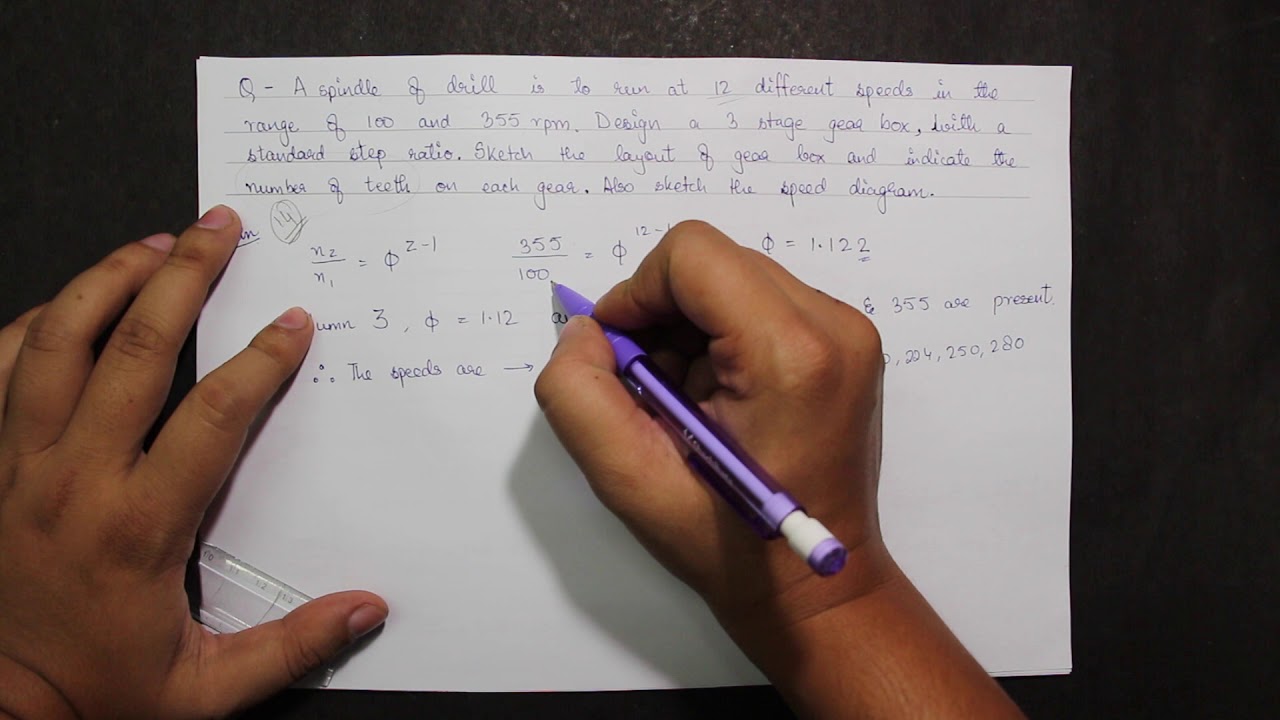 Q - A spindle of drill is to run at 12 different speeds in the
range of 100 and 355 rpm. Design a 3 stage gear box, with a
standard step ratio. Sketch the layout of gear box and indicate the
number of teeth on each gear. Also sketch the speed diagram.
14
nz/n1 = ϕ^z-1 355/100 = ϕ^12-1 ϕ = 1.122
3, ϕ = 1.12 & 355 are present.
∴ The speeds are → 224, 250, 280
10 1.1 1.2 1.3